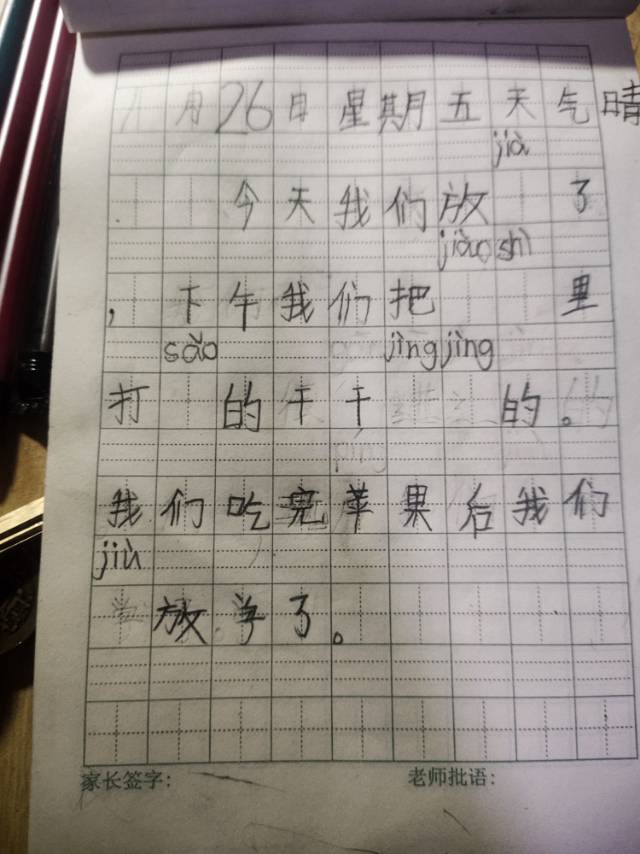 月26日星期五天气晴
jià
今天我们放 了
jiào shì
，下午我们把 里
sǎo jìng jìng
打 的干干 的。
我们吃完苹果后我们
jiù
放学了。
家长签字： 老师批语：